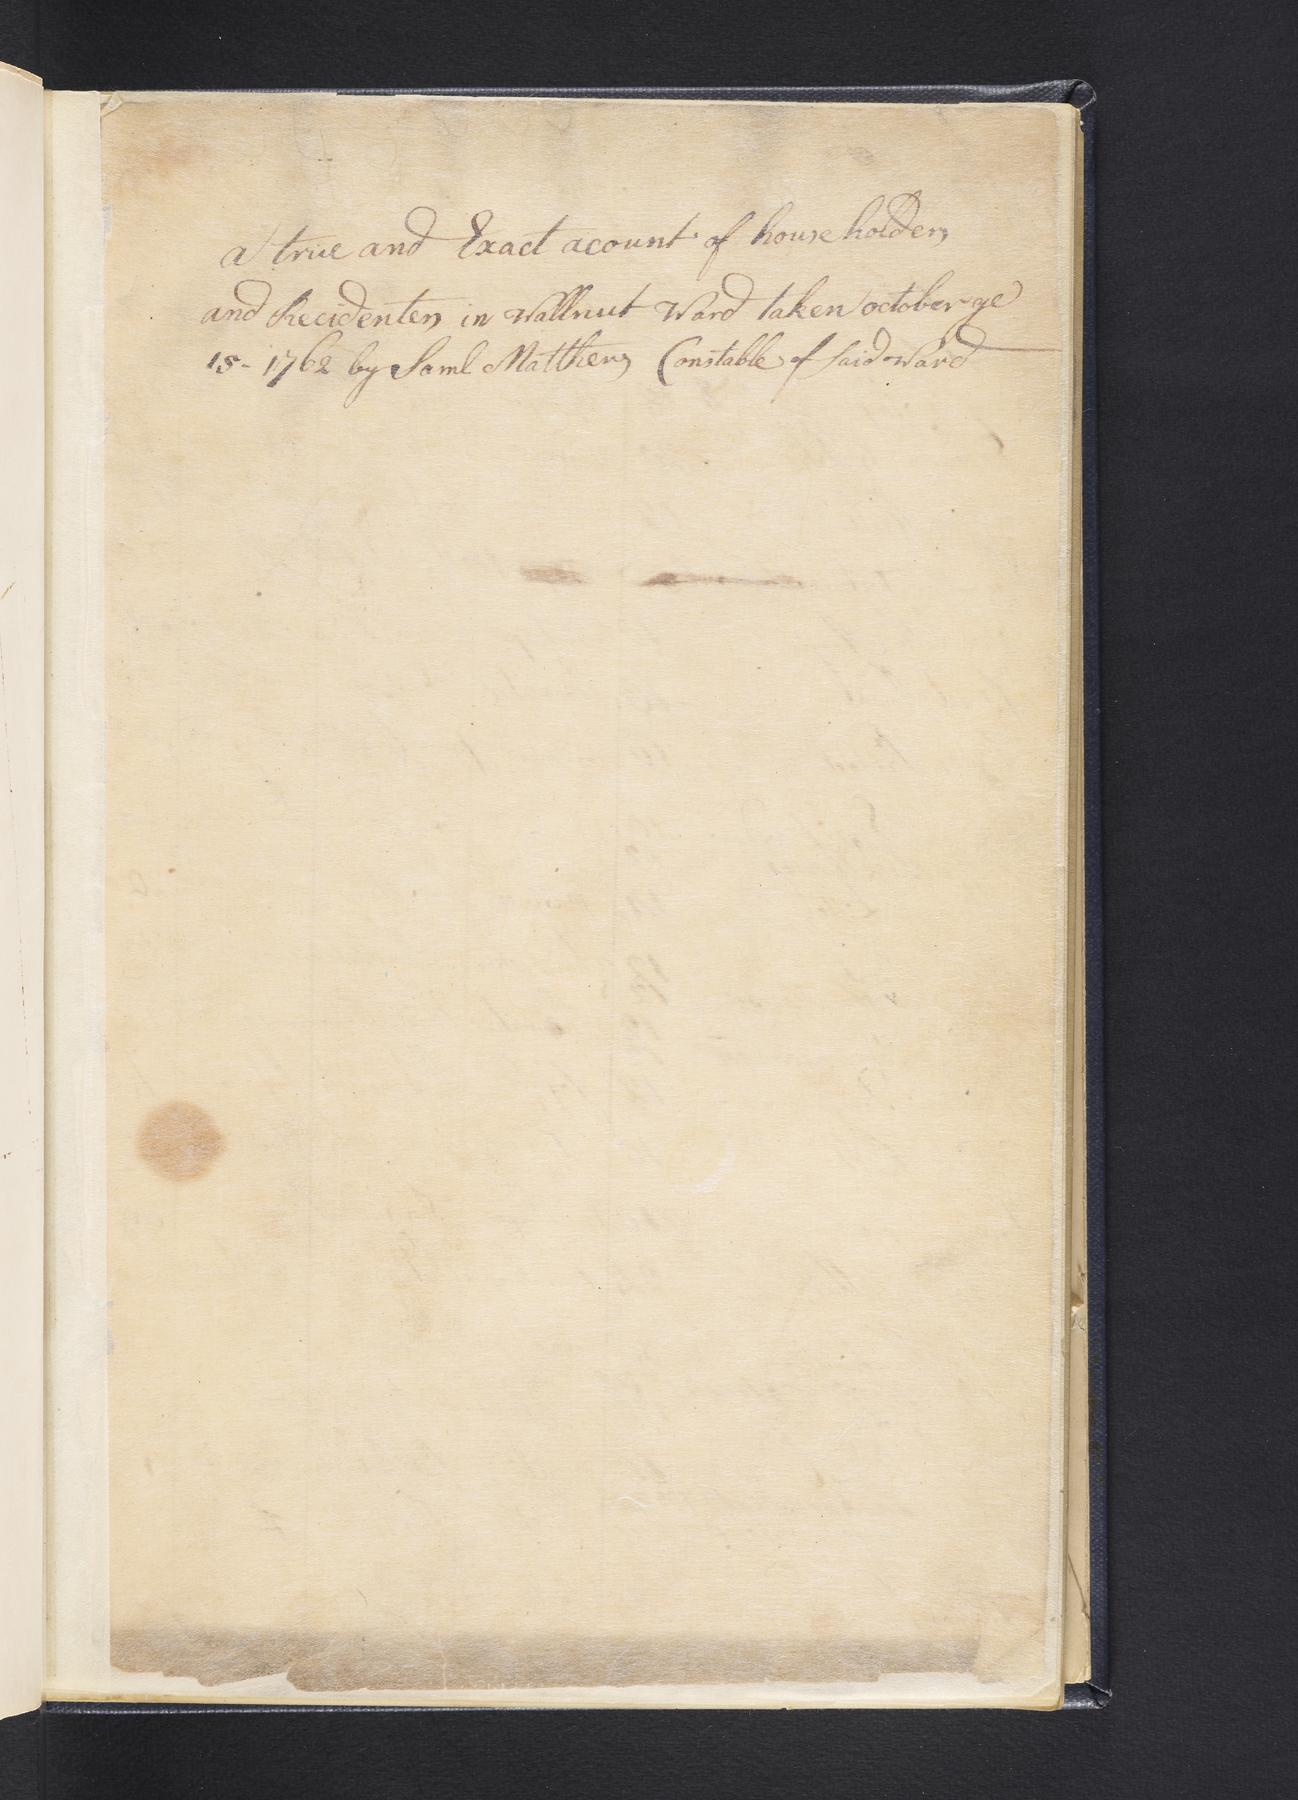 a true and Exact acount of householders
and Recidenters in Wallnut Ward taken october ye
15 - 1762 by Saml Matthews Constable of said Ward